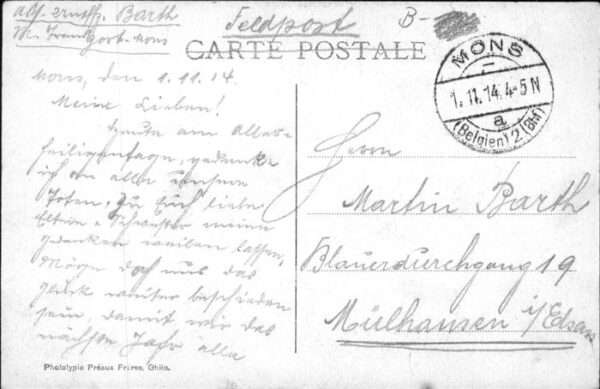 Abs. Ernst Barth
Feldpost
B-
CARTE POSTALE
MONS
1.11.14.4-5N
a
(Belgien) 2 (Bhf)
Mons, den 1.11.14.
Meine Lieben!
Heute am Aller-
heiligentage, gedenke
ich an alle unsere
Toten. Zu Euch liebe
Eltern & Schwester meine
Gedanken weilen lassen,
Möge doch uns das
Glück weiter beschieden
sein, damit wir das
nächste Jahr alle
Herrn
Martin Barth
Blauerdurchgang 19
Mülhausen i/Elsass
Phototypie Préaux Frères, Ghlin.